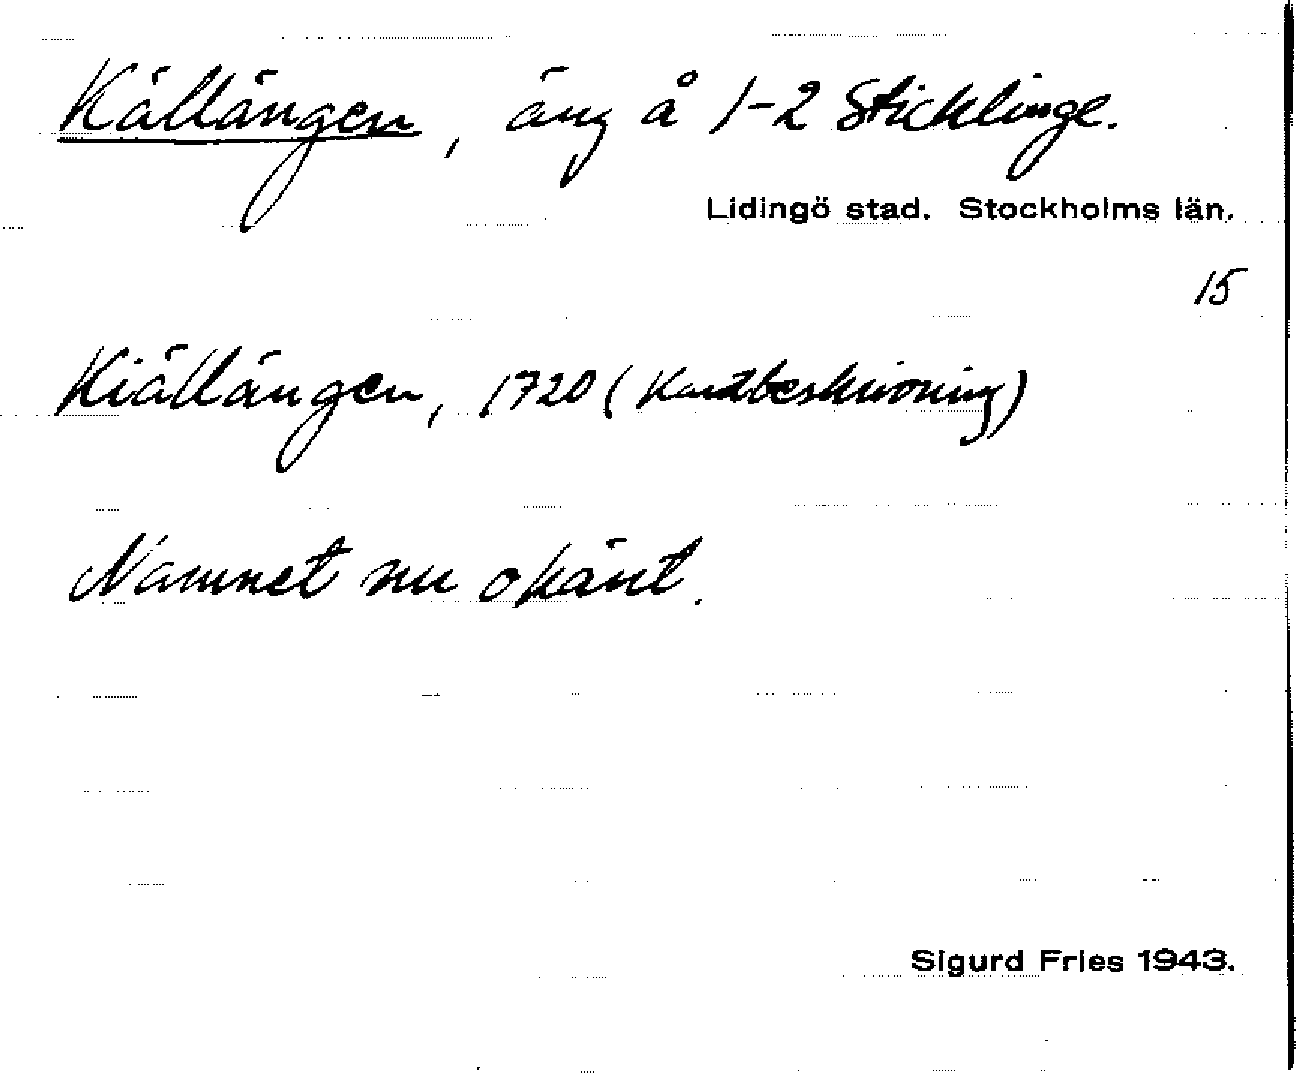 Källängen, äng å 1-2 Sticklinge.
Lidingö stad. Stockholms län.
15
Kiällängen, 1720 (Kartbeskrivning)
Namnet nu okänt.
Sigurd Fries 1943.